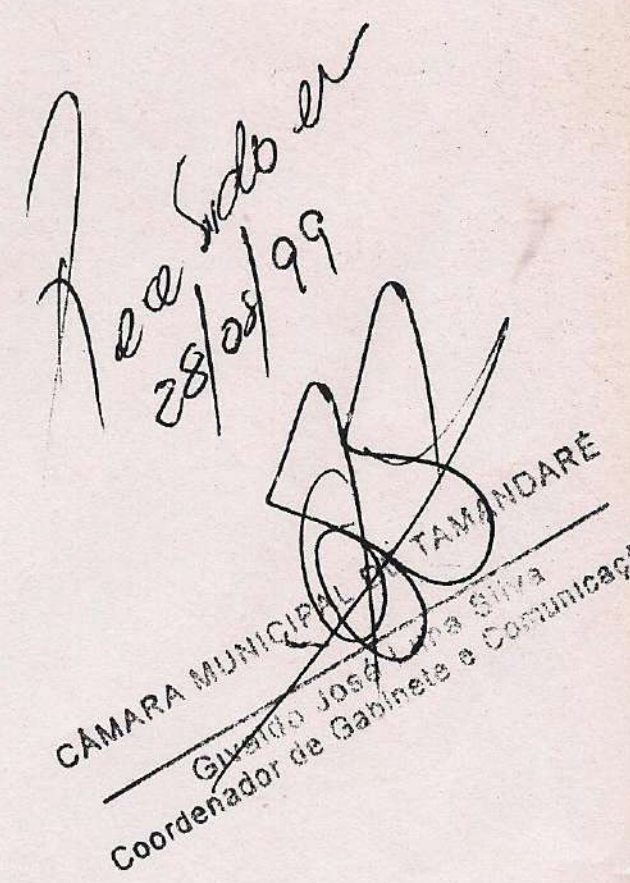 Recebido em
28/08/99
CÂMARA MUNICIPAL DE TAMANDARÉ
Givaldo José Lima Silva
Coordenador de Gabinete e Comunicaçã